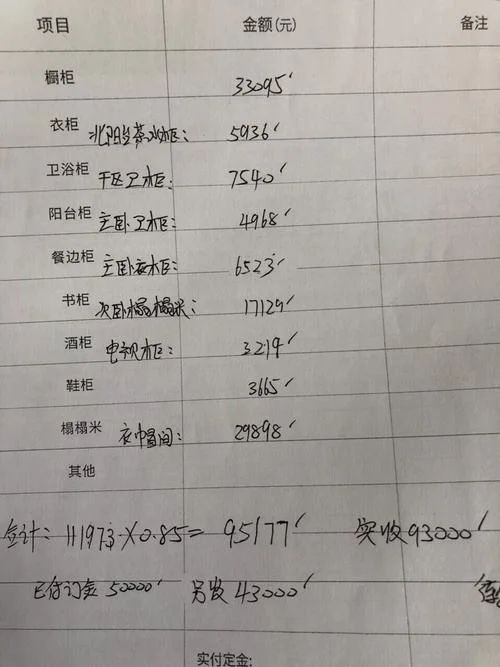 项目 金额(元) 备注
橱柜 33095
衣柜 北阳台茶水柜: 5936
卫浴柜 干区卫柜: 7540
阳台柜 主卧卫柜: 4968
餐边柜 主卧衣柜: 6523
书柜 次卧榻榻米: 17129
酒柜 电视柜: 3219
鞋柜 3665
榻榻米 衣帽间: 29898
其他
合计: 111973×0.85=95177 实收93000
已付订金50000 另收43000
实付定金: